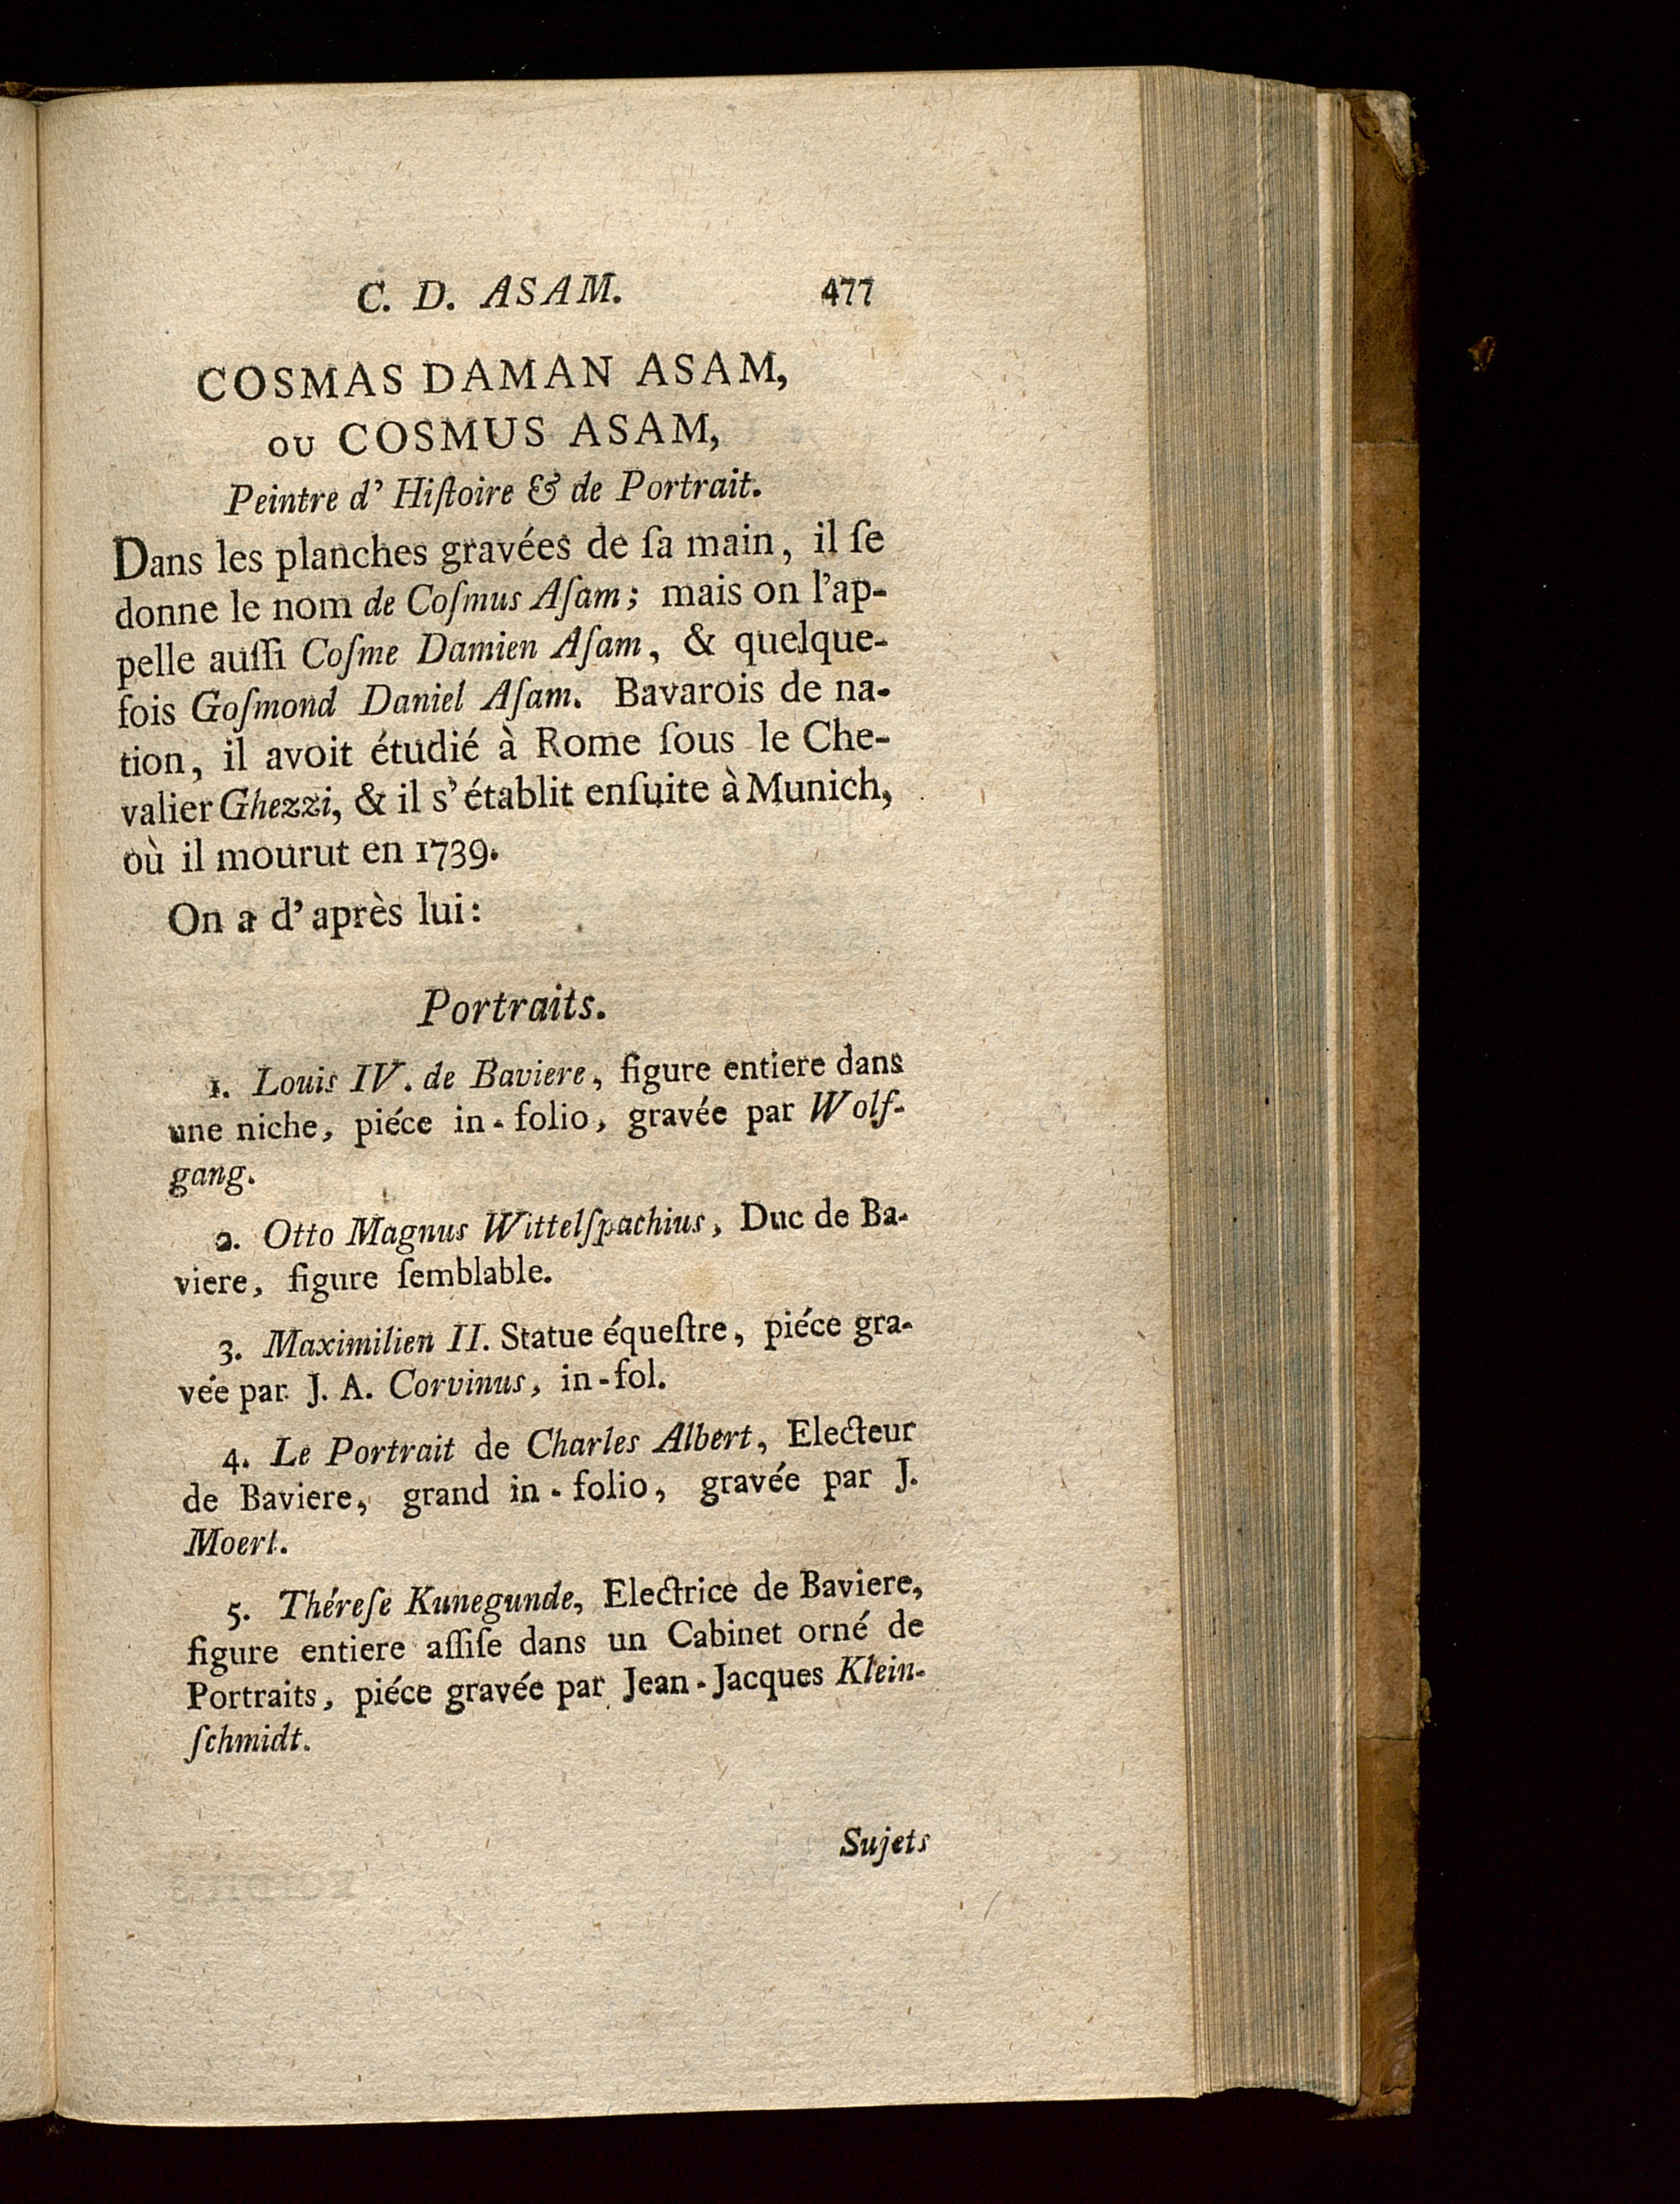 C. D. ASAM. 477
COSMAS DAMAN ASAM,
OU COSMUS ASAM,
Peintre d' Hiſtoire & de Portrait.
Dans les planches gravées de ſa main, il ſe
donne le nom de Coſmus Aſam; mais on l'ap-
pelle auſſi Coſme Damien Aſam, & quelque-
fois Goſmond Daniel Aſam. Bavarois de na-
tion, il avoit étudié à Rome ſous le Che-
valier Ghezzi, & il s'établit enſuite à Munich,
où il mourut en 1739.
On a d'après lui:
Portraits.
1. Louis IV. de Baviere, figure entiere dans
une niche, piéce in-folio, gravée par Wolf-
gang.
2. Otto Magnus Wittelſpachius, Duc de Ba-
viere, figure ſemblable.
3. Maximilien II. Statue équeſtre, piéce gra-
vée par J. A. Corvinus, in-fol.
4. Le Portrait de Charles Albert, Electeur
de Baviere, grand in-folio, gravée par J.
Moerl.
5. Théreſe Kunegunde, Electrice de Baviere,
figure entiere aſſiſe dans un Cabinet orné de
Portraits, piéce gravée par Jean-Jacques Klein-
ſchmidt.
Sujets